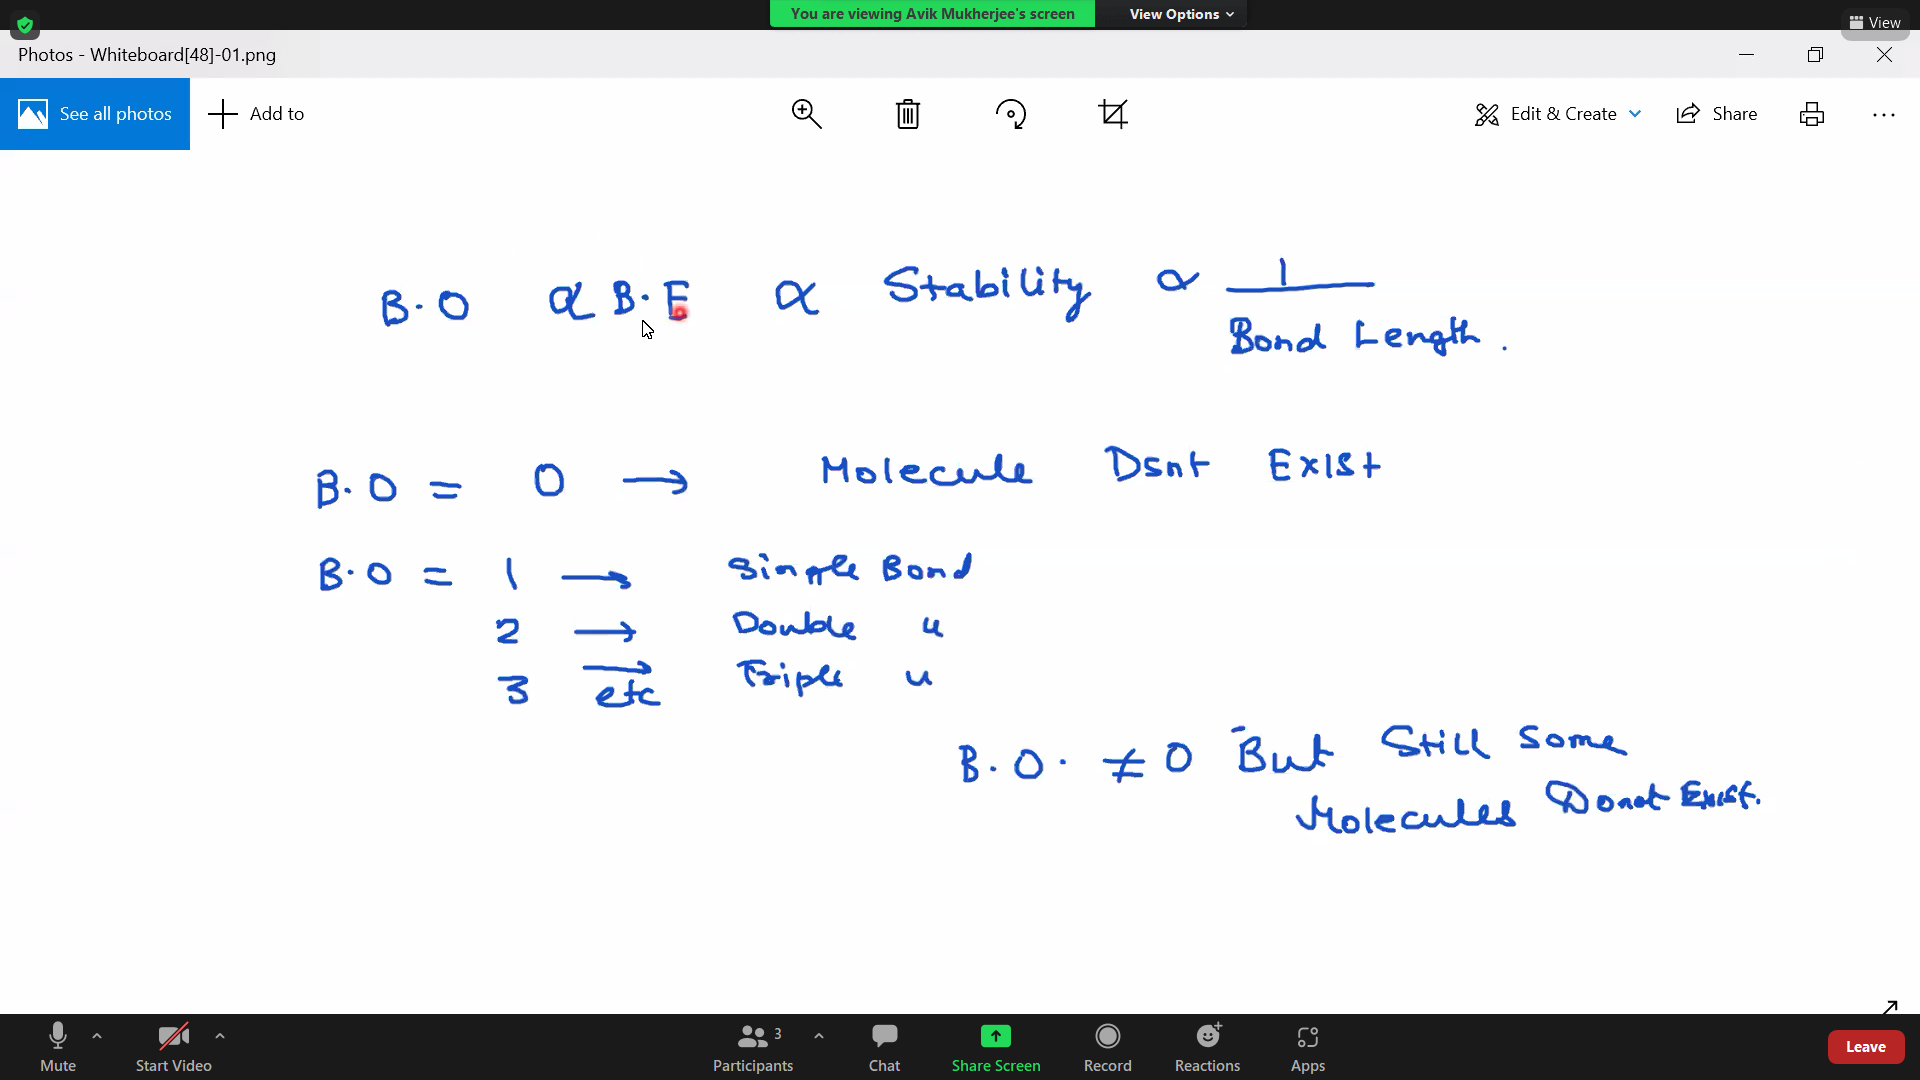 You are viewing Avik Mukherjee's screen View Options
View
Photos - Whiteboard[48]-01.png
See all photos Add to Edit & Create Share
B.O ∝ B.E ∝ Stability ∝ 1
Bond Length.
B.O = 0 → Molecule Dsnt Exist
B.O = 1 → Single Bond
2 → Double "
3 → Triple "
etc
B.O. ≠ 0 But Still Some
Molecules Donot Exist.
Mute Start Video Participants 3 Chat Share Screen Record Reactions Apps Leave